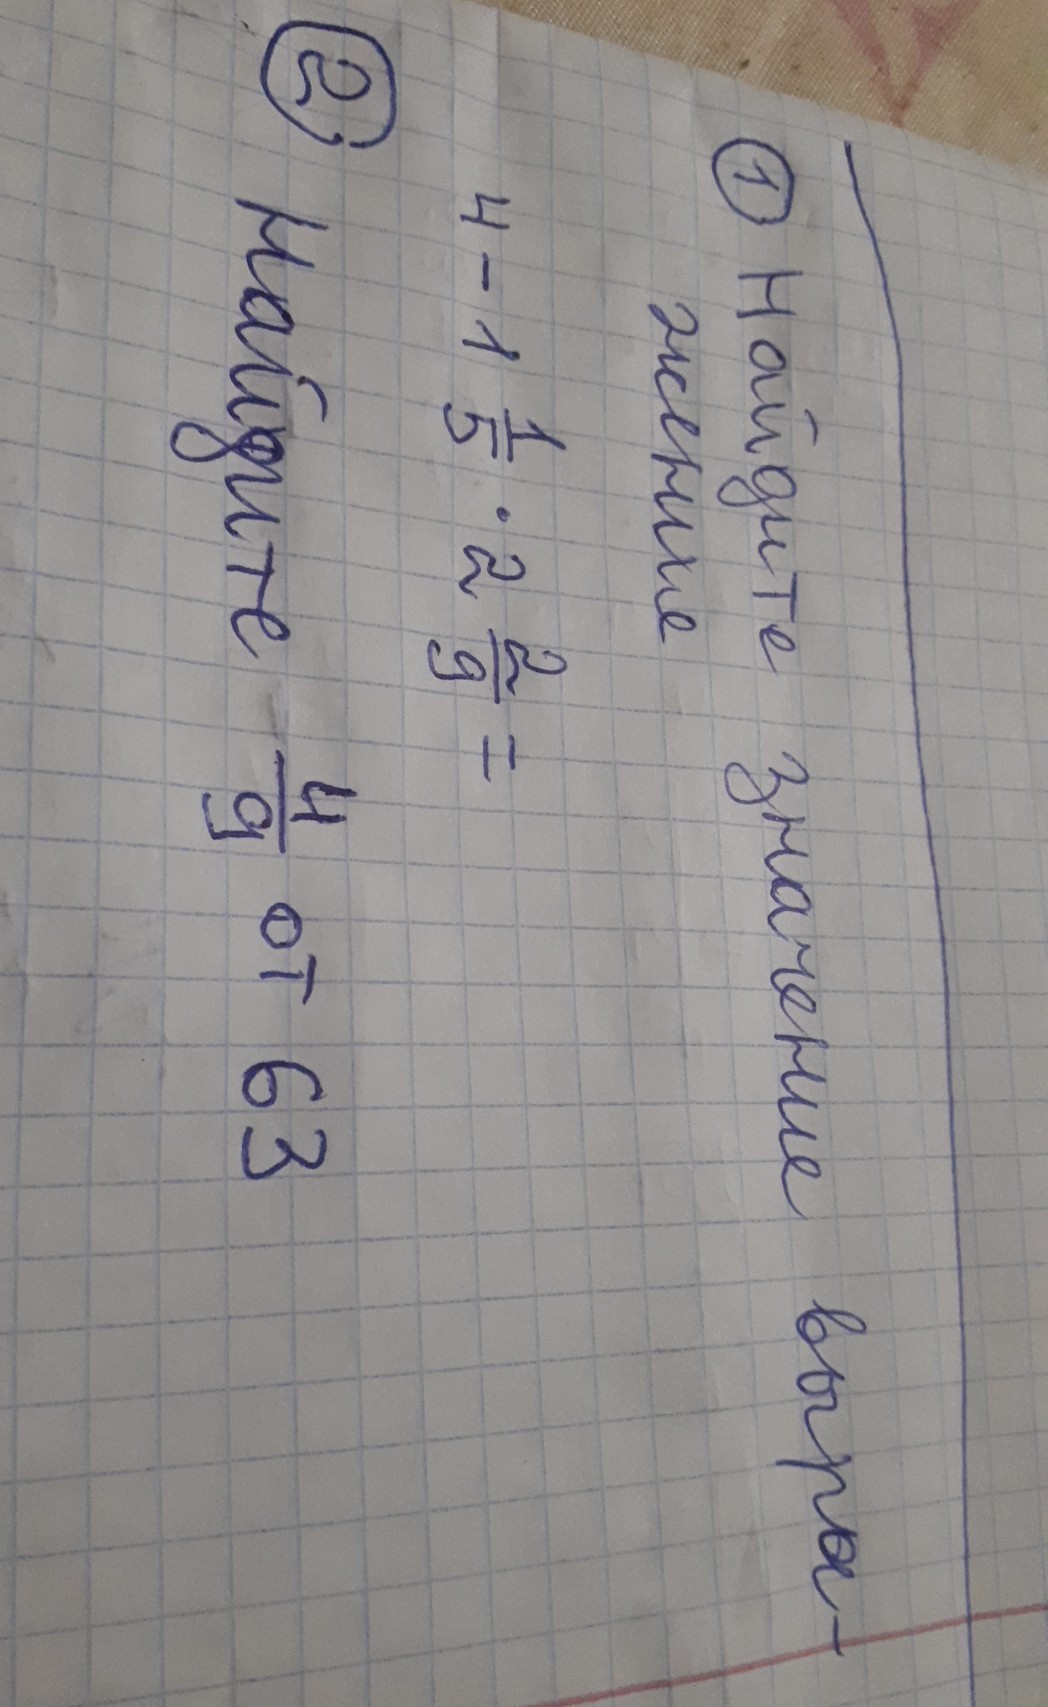 1 Найдите значение выра-
жение
4 - 1 1/5 · 2 2/9 =
2; Найдите 4/9 от 63